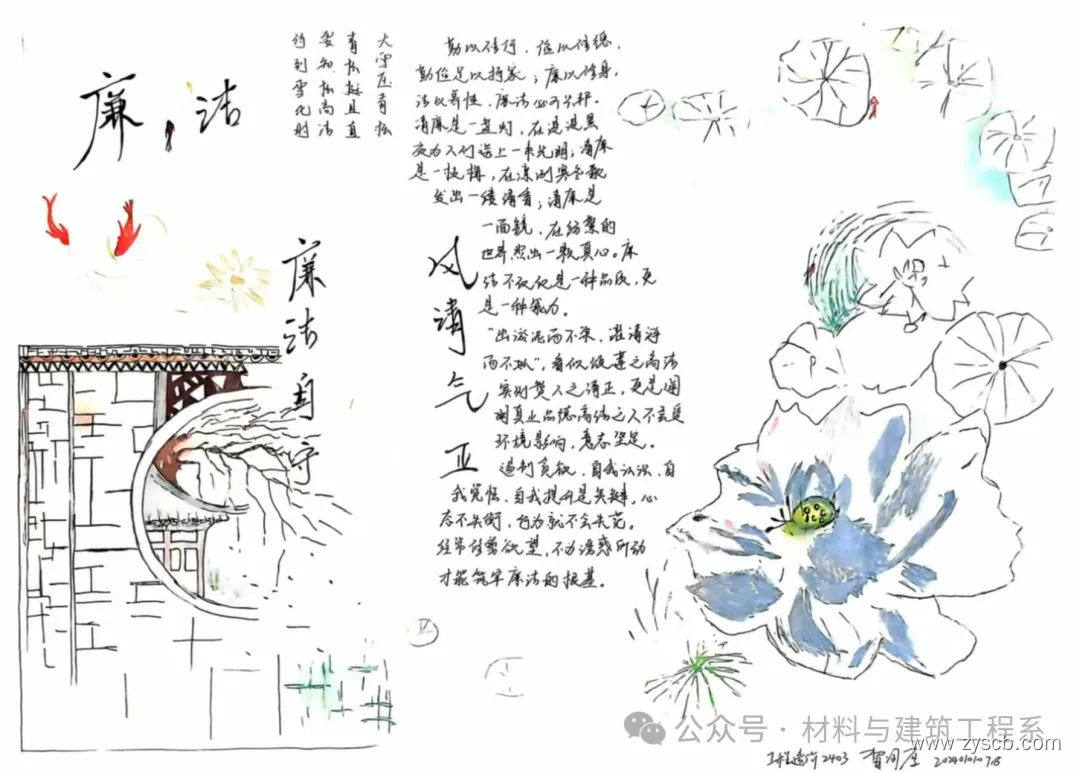 廉洁
大雪压青松
青松挺且直
要知松高洁
待到雪化时
廉洁自守
风清气正
勤以修行，俭以修德，
勤俭足以持家；廉以修身，
洁以养性，廉洁必可兴邦。
清廉是一盏灯，在漫漫黑
夜为人们送上一束光明；清廉
是一枝梅，在凛冽寒冬散
发出一缕清香；清廉是
一面镜，在纷繁的
世界照出一颗真心。廉
洁不仅仅是一种品质，更
是一种能力。
“出淤泥而不染，濯清涟
而不妖”，看似颂莲之高洁
实则赞人之清正，更是阐
明真正品德高洁之人不会受
环境影响，意志坚定。
遏制贪欲，自我认识、自
我觉悟、自我提升是关键，心
态不失衡，行为就不会失范。
经常修剪欲望，不为诱惑所动
才能筑牢廉洁的根基。
公众号·材料与建筑工程系
www.zyscb.com
工程造价2403